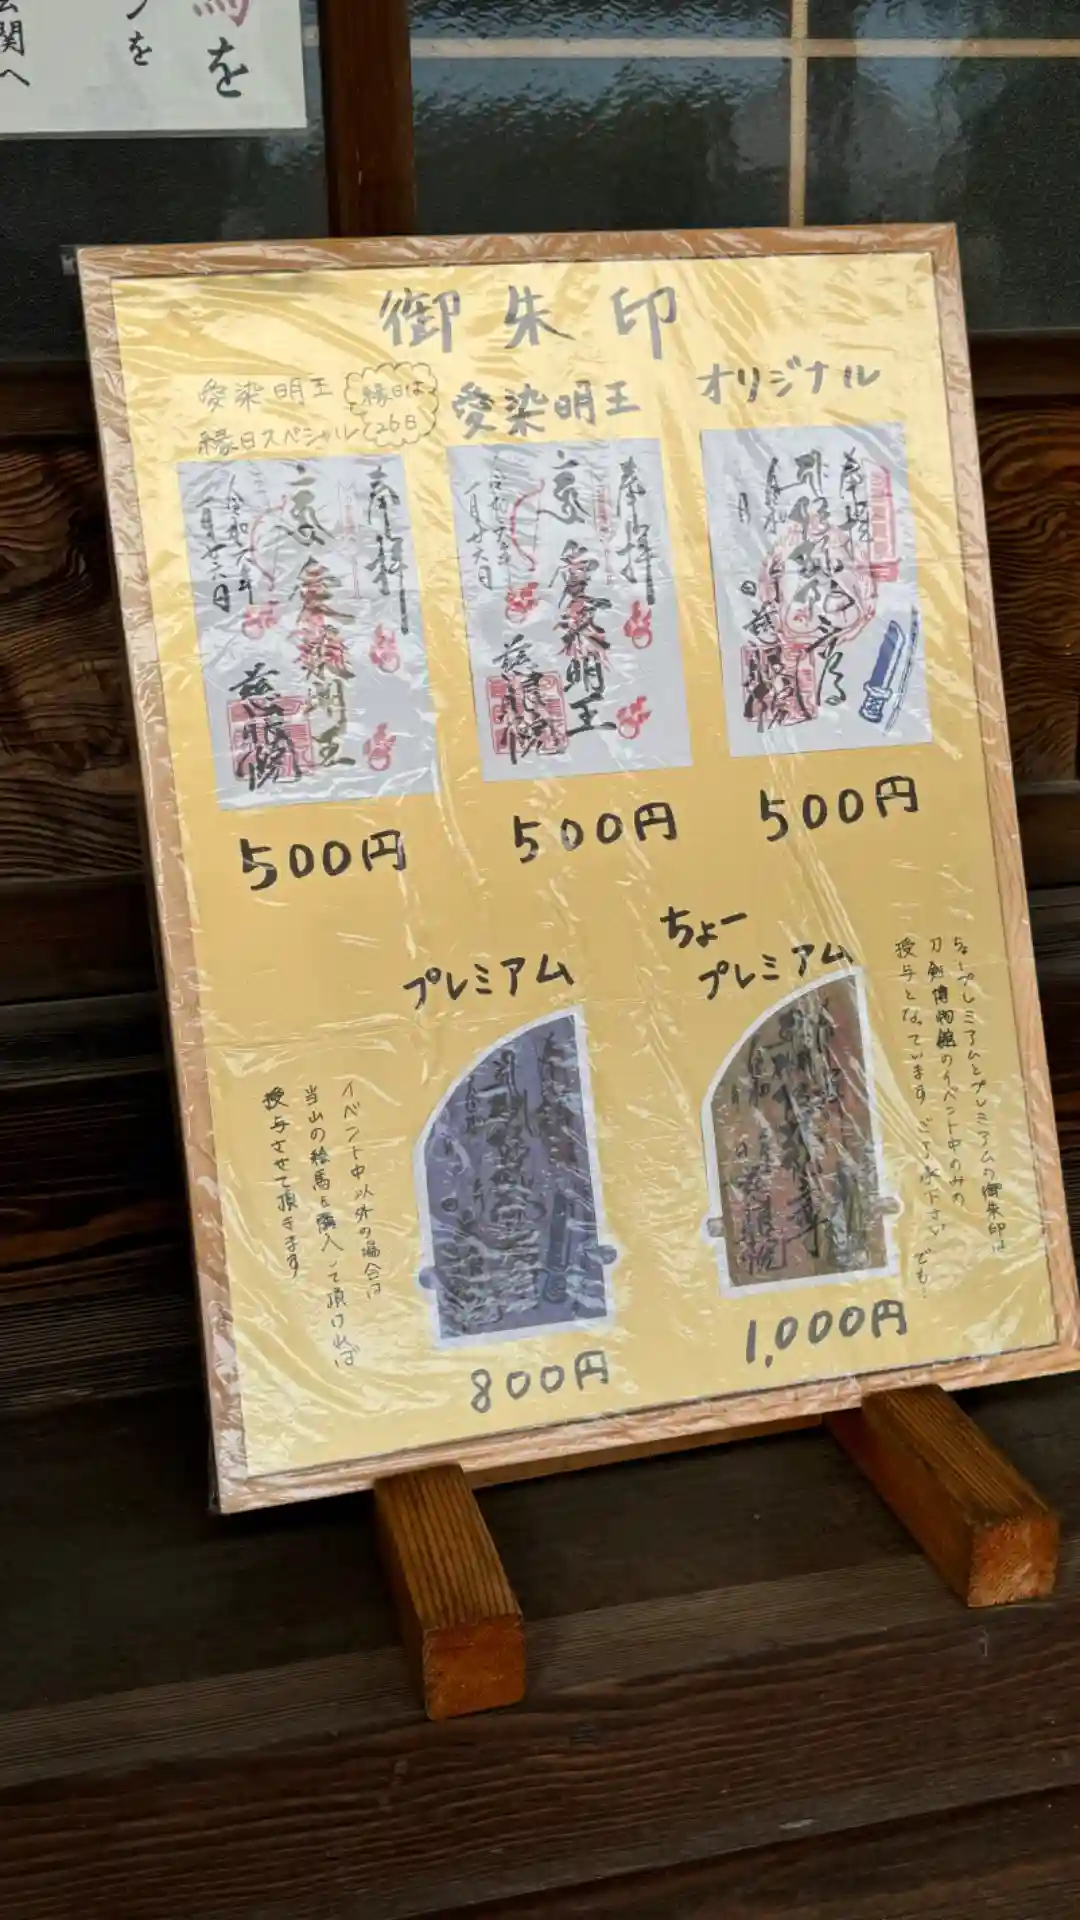 馬を
つを
玄関へ
御朱印
愛染明王
縁日スペシャル
縁日は
26日
愛染明王
オリジナル
奉拝
愛染明王
令和六年
一月廿六日
慈眼院
奉拝
愛染明王
令和六年
一月廿六日
慈眼院
奉拝
令和 年
月 日
慈眼院
500円
500円
500円
プレミアム
ちょー
プレミアム
ちょープレミアムとプレミアムの御朱印は
刀剣博物館のイベント中のみの
授与となっています ご了承下さい でも…
イベント中以外の場合は
当山の絵馬を購入して頂ければ
授与させて頂きます
800円
1,000円